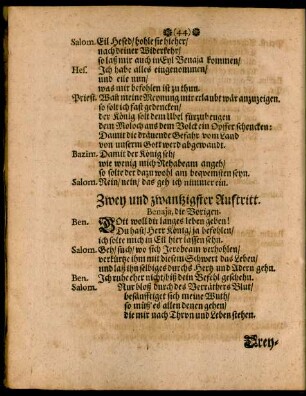 (44)
Salom. Eil Hesed/ hohle sie hieher/
nach deiner Widerkehr/
so laß mir auch in Eyl Benaja kommen/
Hes. Ich habe alles eingenommen/
und eile nun/
was mir befohlen ist zu thun.
Priest. Wañ meine Meynung mir erlaubt wär anzuzeigen.
so solt ich fast gedencken/
der König solt dem übel fürzubeugen
dem Moloch aus dem Volck ein Opffer schencken:
Damit die dräuende Gefahr vom Land
von unserm Gott werd abgewandt.
Bazim. Damit der König seh/
wie wenig mich Rehabeam angeh/
so solte der dazu wohl am bequemsten seyn.
Salom. Nein/ nein/ das geh ich nimmer ein.
Zwey und zwantzigster Aufftritt.
Benaja, die Vorigen.
Ben. GOtt woll dir langes leben geben!
Du hast/ Herr König/ ja befohlen/
ich solte mich in Eil hier lassen sehn.
Salom. Geh/ such/ wo sich Jerobeam verhohlen/
verkürtze ihm mit diesem Schwert das Leben/
und laß ihn selbiges durchs Hertz und Adern gehn.
Ben. Ich ruhe eher nicht/ biß dein Befehl geschehn.
Salom. Nur bloß durch des Verräthers Blut/
besänfftiget sich meine Wuth/
so müß es allen denen gehen/
die mir nach Thron und Leben stehen.
Drey-